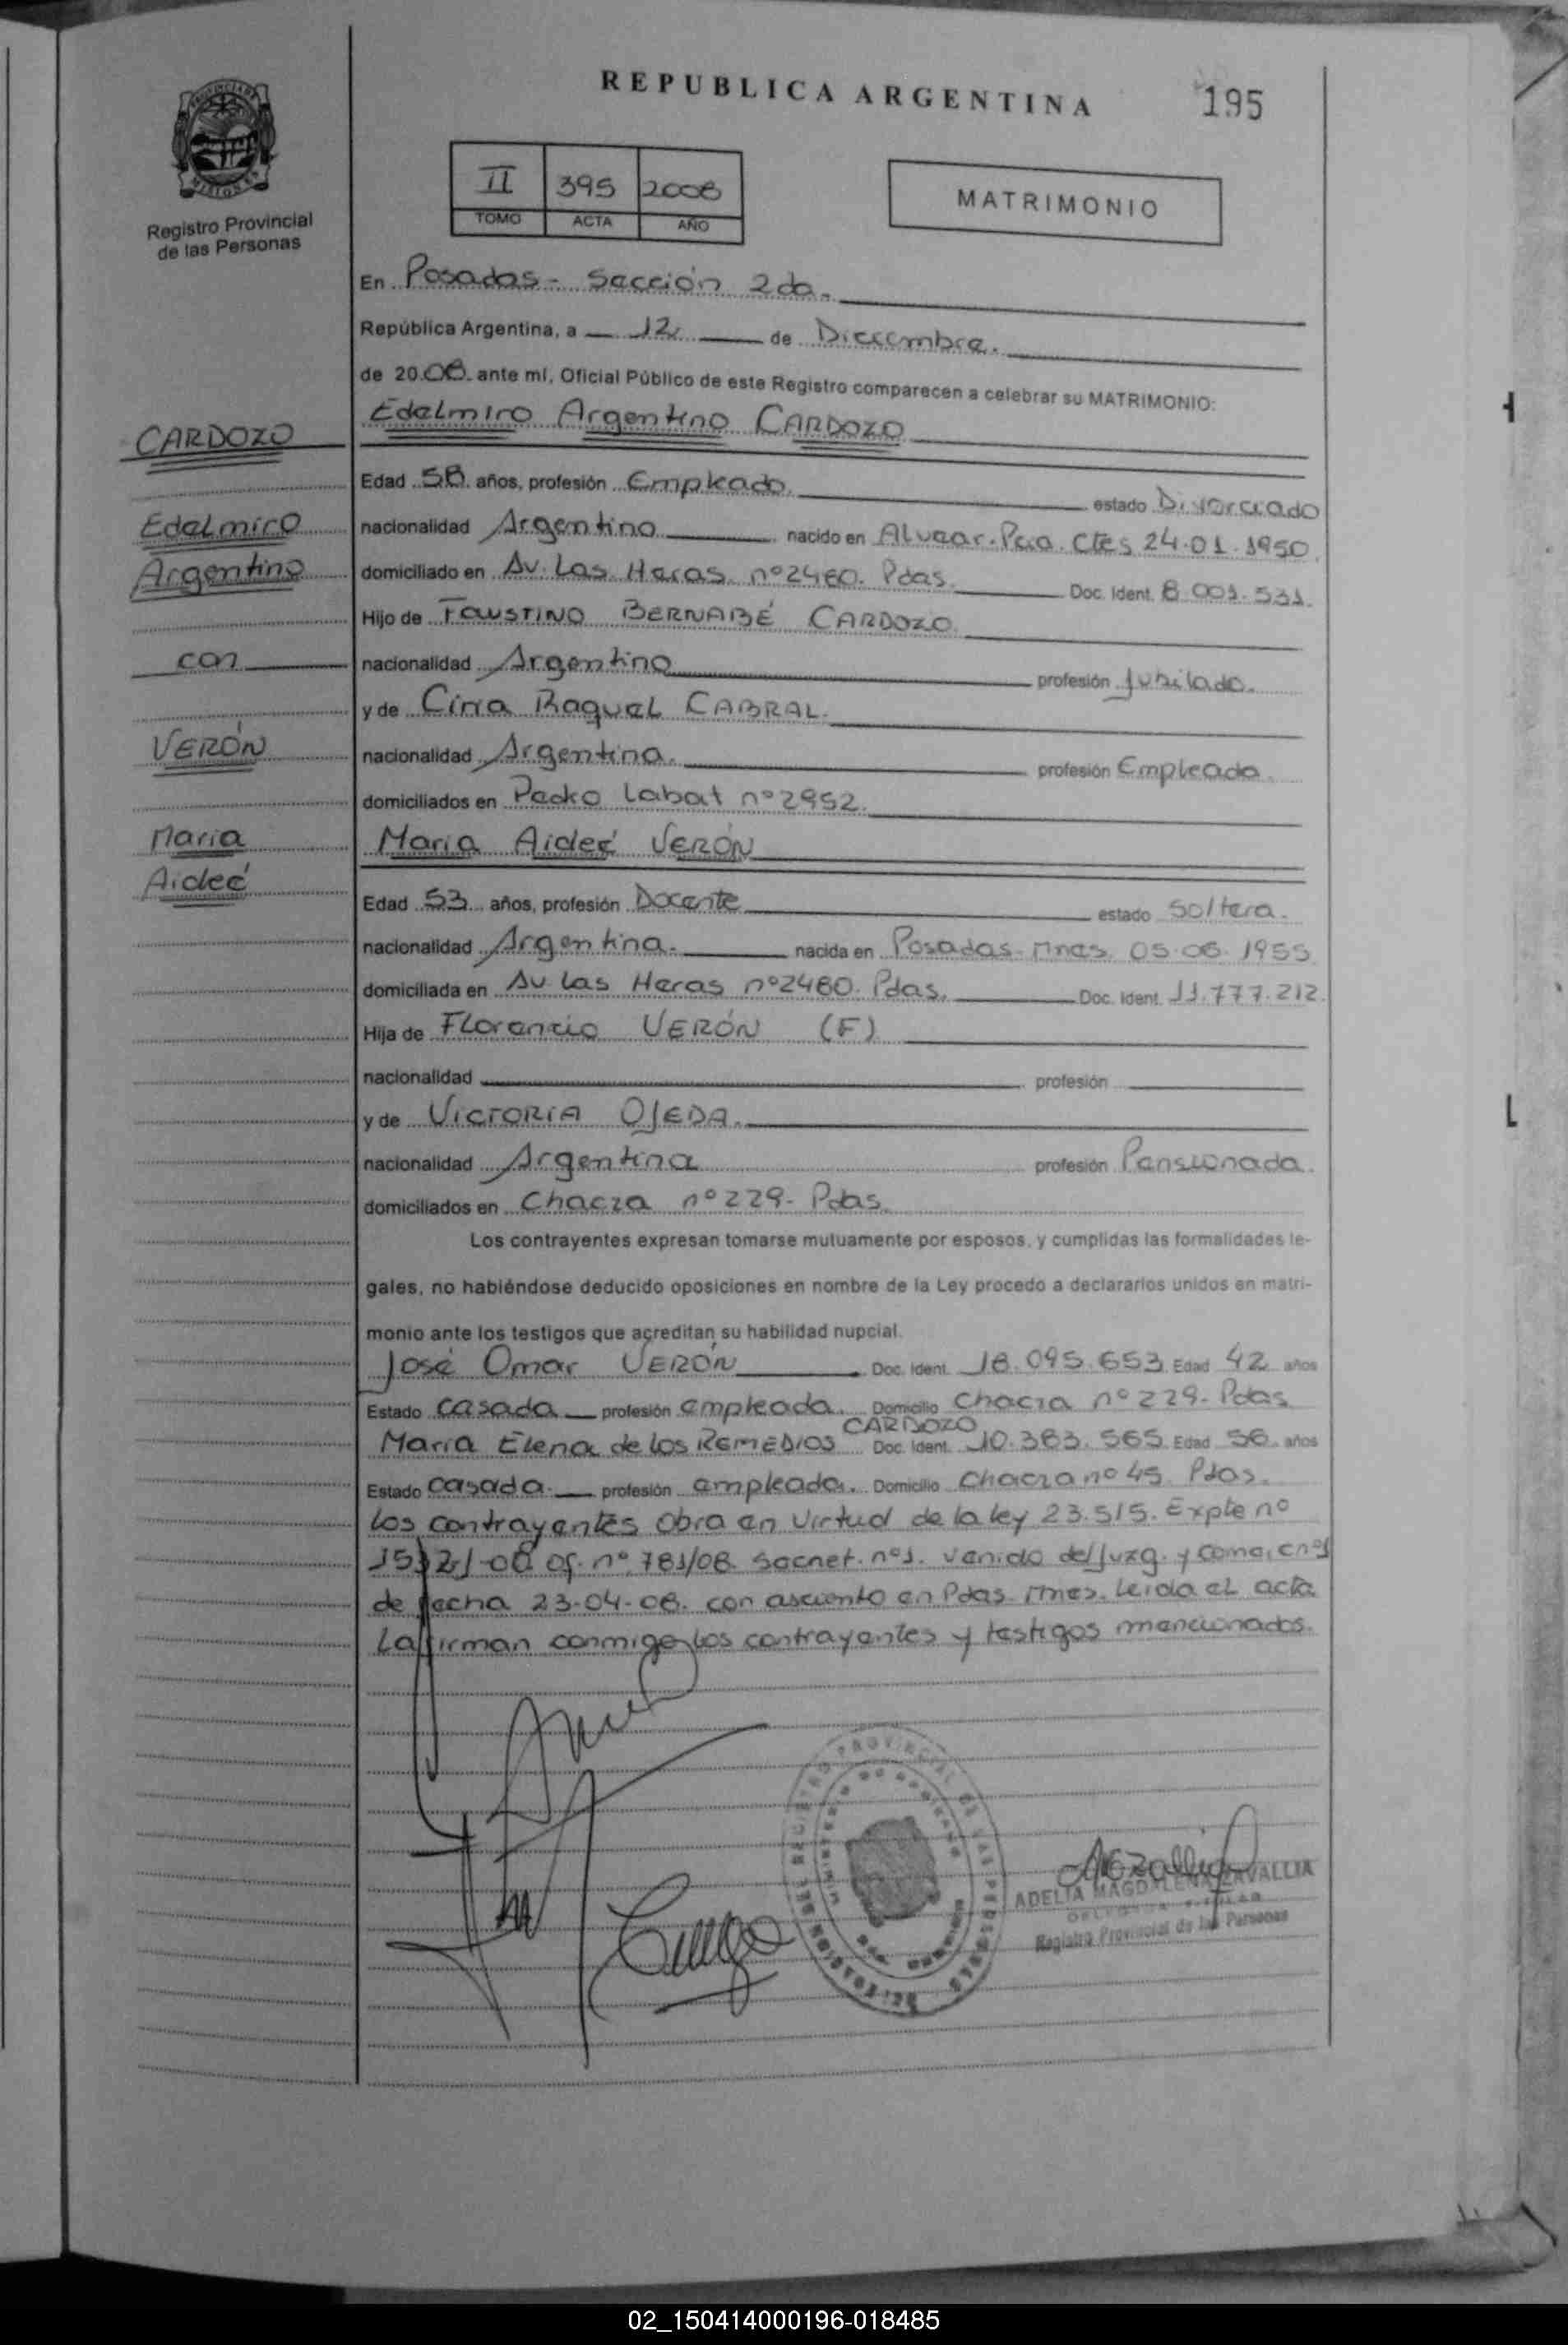 REPUBLICA ARGENTINA
195
Registro Provincial
de las Personas
II 395 2008
TOMO ACTA AÑO
MATRIMONIO
En Posadas - Sección 2da.
República Argentina, a 12 de Diciembre.
de 2008 ante mí, Oficial Público de este Registro comparecen a celebrar su MATRIMONIO:
Edelmiro Argentino CARDOZO
CARDOZO
Edad 58 años, profesión Empleado. estado Divorciado
Edelmiro
nacionalidad Argentino nacido en Alvear. Pcia. Ctes 24.01.1950.
Argentino
domiciliado en Av. Las Heras nº2460. Pdas. Doc. Ident. 8.001.531.
Hijo de FAUSTINO BERNABÉ CARDOZO.
con
nacionalidad Argentino profesión Jubilado.
y de Raquel CABRAL.
VERÓN
nacionalidad Argentina. profesión Empleada.
domiciliados en Pedro Labat nº2952.
Maria
Maria Aideé VERÓN
Aideé
Edad 53 años, profesión Docente estado Soltera.
nacionalidad Argentina. nacida en Posadas - Mnes. 05.06.1955
domiciliada en Av. Las Heras nº2460. Pdas. Doc. Ident. 11.777.212.
Hija de Florencio VERÓN (F)
nacionalidad profesión
y de VICTORIA OJEDA.
nacionalidad Argentina profesión Pensionada.
domiciliados en Chacra nº229- Pdas.
Los contrayentes expresan tomarse mutuamente por esposos, y cumplidas las formalidades le-
gales, no habiéndose deducido oposiciones en nombre de la Ley procedo a declararlos unidos en matri-
monio ante los testigos que acreditan su habilidad nupcial.
José Omar VERÓN Doc. Ident. 18.095.653 Edad 42 años
Estado casada profesión empleada. Domicilio Chacra nº 229- Pdas
CARDOZO
Maria Elena de los REMEDIOS Doc. Ident. 10.383.565 Edad 56 años
Estado casada. profesión empleada. Domicilio Chacra nº 45 Pdas.
Los contrayentes obra en virtud de la ley 23.515. Expte nº
of. nº 781/08. Secret. nº1. venido del Juzg.
de fecha 23-04-08. con asiento en Pdas. Mnes. Leida el acta
La firman conmigo los contrayentes y testigos mencionados.
REGISTRO PROVINCIAL DE LAS PERSONAS
ADELIA MAGDALENA ZAVALLIA
Registro Provincial de las Personas
02_150414000196-018485